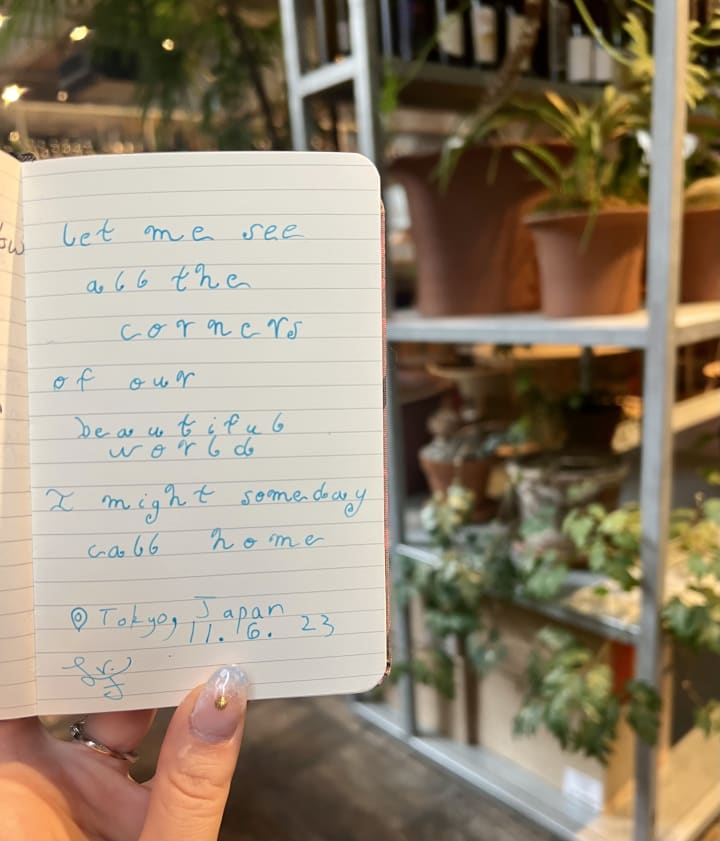 let me see
all the
corners
of our
beautiful
world
I might someday
call home
Tokyo, Japan
11. 6. 23